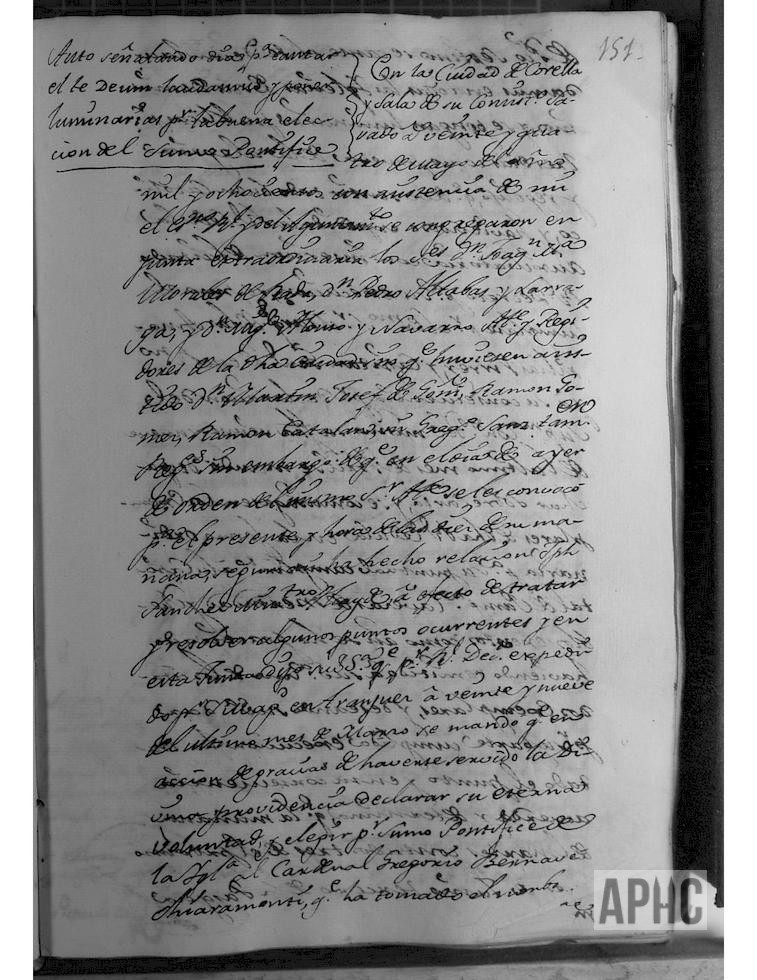 151.
Auto señalando dias pª cantar
el te Deum laudamus y poner
luminarias pr. la buena elec-
cion del Sumo Pontifice
En la Ciudad de Corella
y Sala de su Consist. Sa-
vado a veinte y qua-
tro de mayo del año
mil y ochocientos con asistencia de mi
el Essno. Rl. y del Ayuntamto. se congregaron en
Junta extraordinaria los Ses. Dn. Joaqn.
Morales de Rada, Dn. Pedro Altabas y Larra-
ga, y Dn. Alonso y Navarro Alce. y Regi-
dores de la dha Ciudad sin qe. huviesen asis-
tido Dn. Martin Josef de Ramon Go-
mez, Ramon Catalan, ni Gregº. Sanz tam.en
Regs. sin embargo de qe. en el dia de ayer
de orden de Sr. Alce. se les convocó
pª. el presente y hora de las diez de su ma-
ñana, segun lo ha hecho relacion Jph
Sanchez a efecto de tratar
y resolver algunos puntos ocurrentes y en
esta Junta dijo su Sª. qe. pr. Rl. Dec. expedi-
do pr. S. Mag. en Aranjuez à veinte y nueve
del ultimo mes de Marzo se mandó qe. en
accion de gracias de haverse servido la Di-
vina providencia declarar su eterna
voluntad, y elegir pr. Sumo Pontifice de
la Yglª. al Cardenal Gregorio Bernave
Chiaramonti, qe. ha tomado el nombe.
APHC